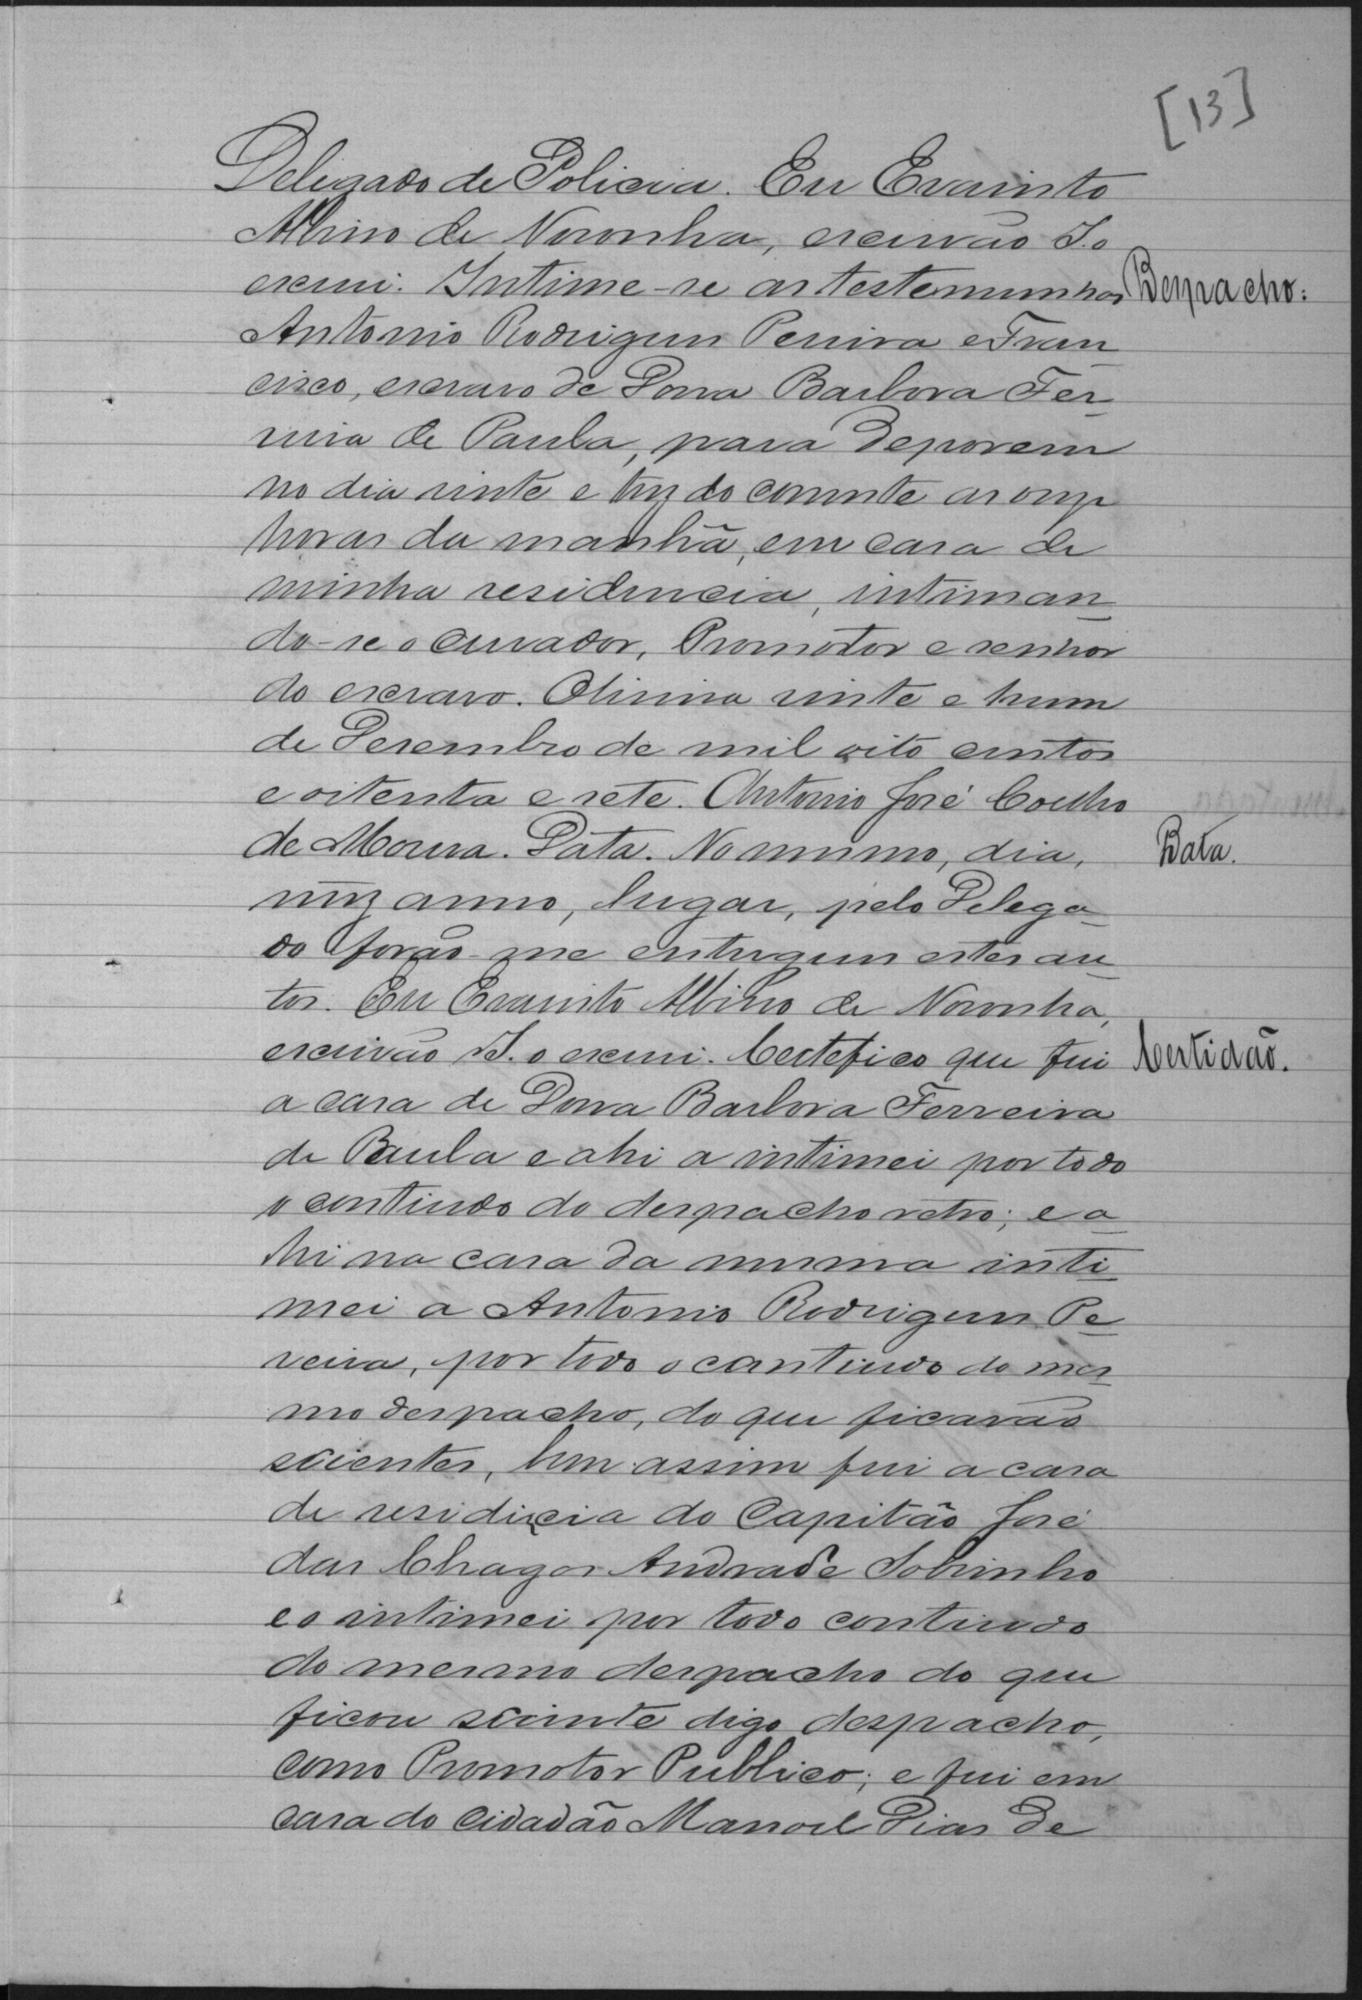 [13]
Delegado de Policia. Eu Evaristo
Albino de Noronha, escrivão I. o
escrevi. Intime-se as testemunhas Despacho:
Antonio Rodrigues Pereira e Fran
cisco, escravo de Dona Barbora Fer-
reira de Paula, para deporem
no dia vinte e trez do corrente as onze
horas da manhã, em casa de
minha residencia, intiman
do-se o curador, Promotor e senhor
do escravo. Oliveira vinte e hum
de Desembro de mil oito centos
e oitenta e sete. Antonio José Coelho
de Moura. Data. No mesmo, dia, Data.
mez anno, lugar, pelo Delega-
do forão-me entregues estes au-
tos. Eu Evaristo Albino de Noronha,
escrivão I. o escrevi. Certefico que fui Certidão.
a casa de Dona Barbora Ferreira
de Paula e ahi a intimei por todo
o contiudo do despacho retro; e a-
hi na casa da mesma inti-
mei a Antonio Rodrigues Pe-
reira, por todo o contiudo do mes-
mo despacho, do que ficarão
scientes, bem assim fui a casa
de residicia do Capitão José
das Chagas Andrade Sobrinho
e o intimei por todo contiudo
do mesmo despacho do que
ficou sciente digo despacho,
como Promotor Publico; e fui em
casa do Cidadão Manoel Dias de